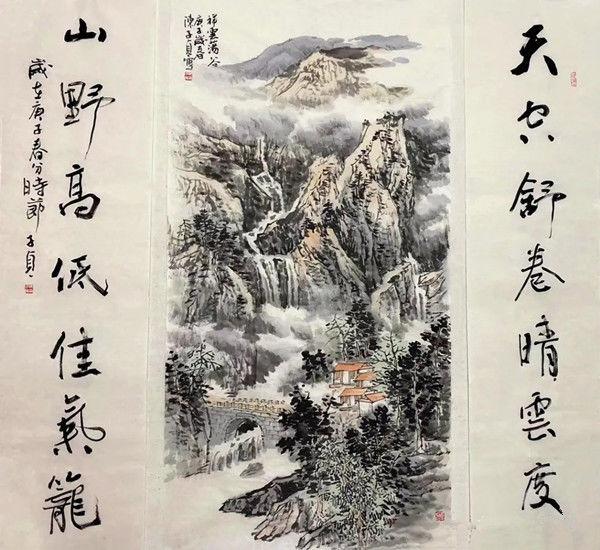 天空舒卷晴雲度
祥雲滿谷
庚子歲春
陳子貞寫
山野高低佳氣籠
歲在庚子春分時節 子貞